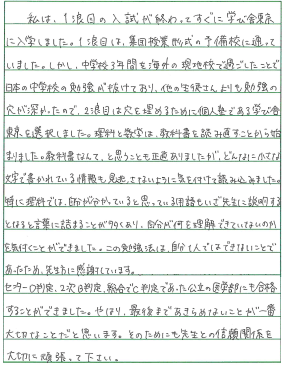 私は、1浪目の入試が終わってすぐに学び舎東京
に入学しました。1浪目は、集団授業形式の予備校に通って
いました。しかし、中学校3年間を海外の現地校で過ごしたことで
日本の中学校の勉強が抜けており、他の生徒さんよりも勉強の
穴が深かったので、2浪目は穴を埋めるために個人塾である学び舎
東京を選択しました。理科と数学は、教科書を読み直すことから始
まりました。教科書なんて、と思うことも正直ありましたが、どんなに小さな
文字で書かれている情報も見逃さないように気を付けて読み込みました。
特に理科では、自分が分かっていると思っている用語もいざ先生に説明する
となると言葉に詰まることが多くあり、自分が何を理解できていないのか
を気付くことができました。この勉強法は、自分1人ではできないことで
あったため、先生方に感謝しています。
センターD判定、2次B判定、総合でC判定であった公立の医学部にも合格
することができました。やはり、最後まであきらめないことが一番
大切なことだと思います。そのためにも先生との信頼関係を
大切に頑張って下さい。